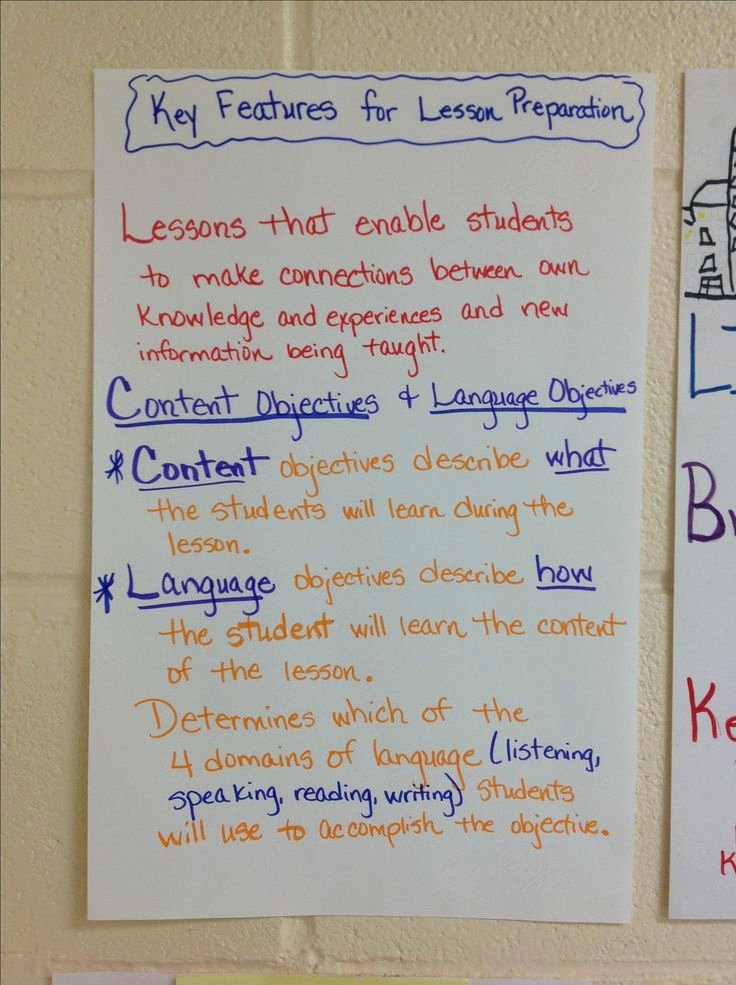 Key Features for Lesson Preparation
Lessons that enable students
to make connections between own
knowledge and experiences and new
information being taught.
Content Objectives & Language Objectives
* Content objectives describe what
the students will learn during the
lesson.
* Language objectives describe how
the student will learn the content
of the lesson.
Determines which of the
4 domains of language (listening,
speaking, reading, writing) students
will use to accomplish the objective.